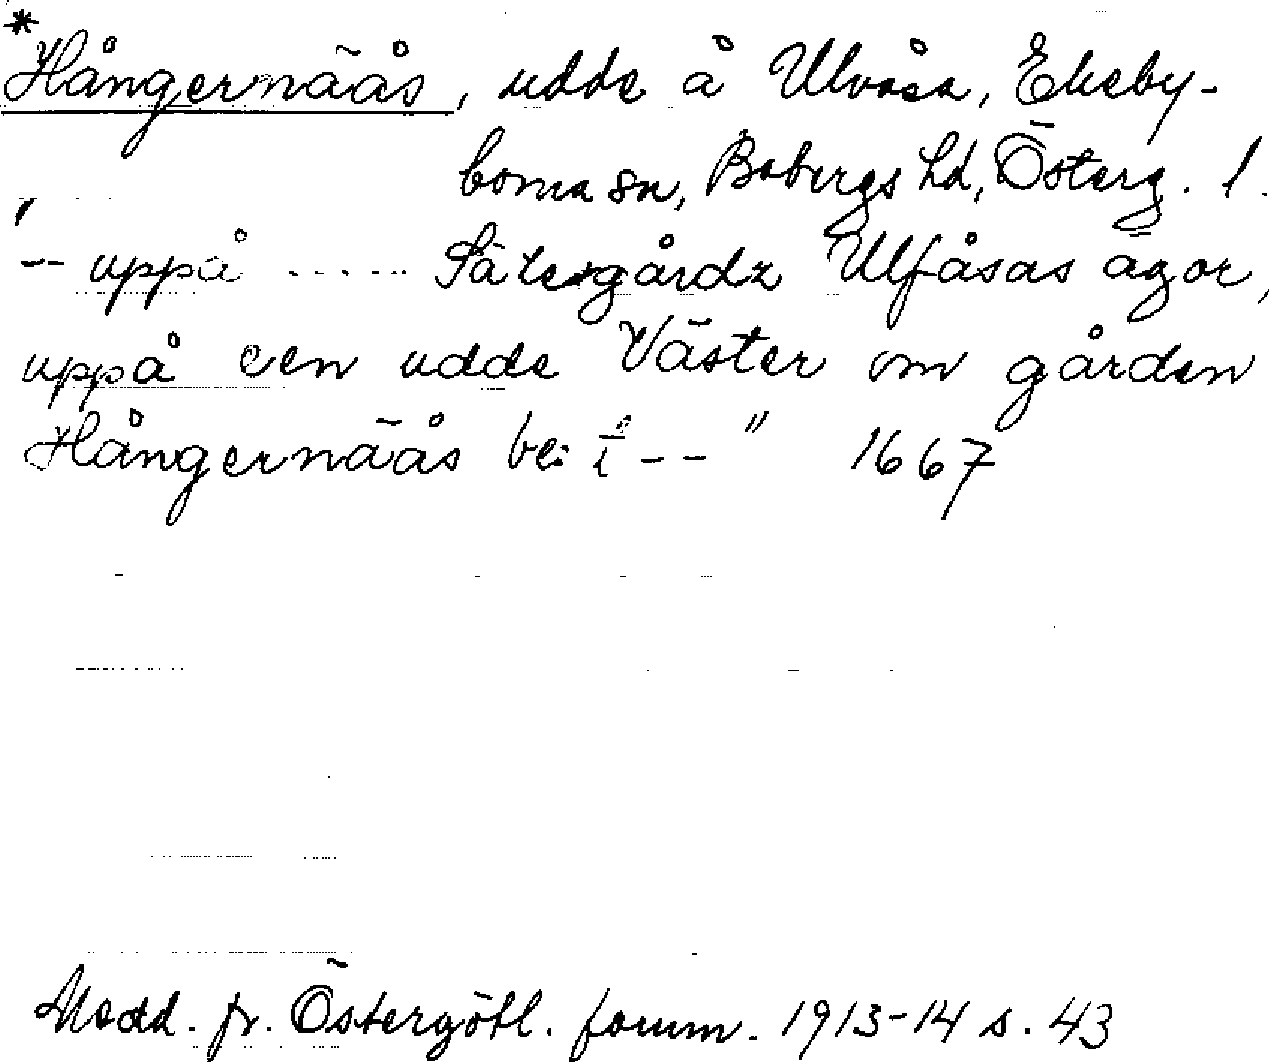 *
Hångernäås, udde å Ulvåsa, Ekeby-
borna sn, Bobergs hd, Österg. l.
"-- uppå ...... Sätesgårdz Ulfåsas ägor,
uppå een udde Väster om gården
Hångernäås be: t -- " 1667
Medd. fr. Östergötl. fornm. 1913-14 s. 43